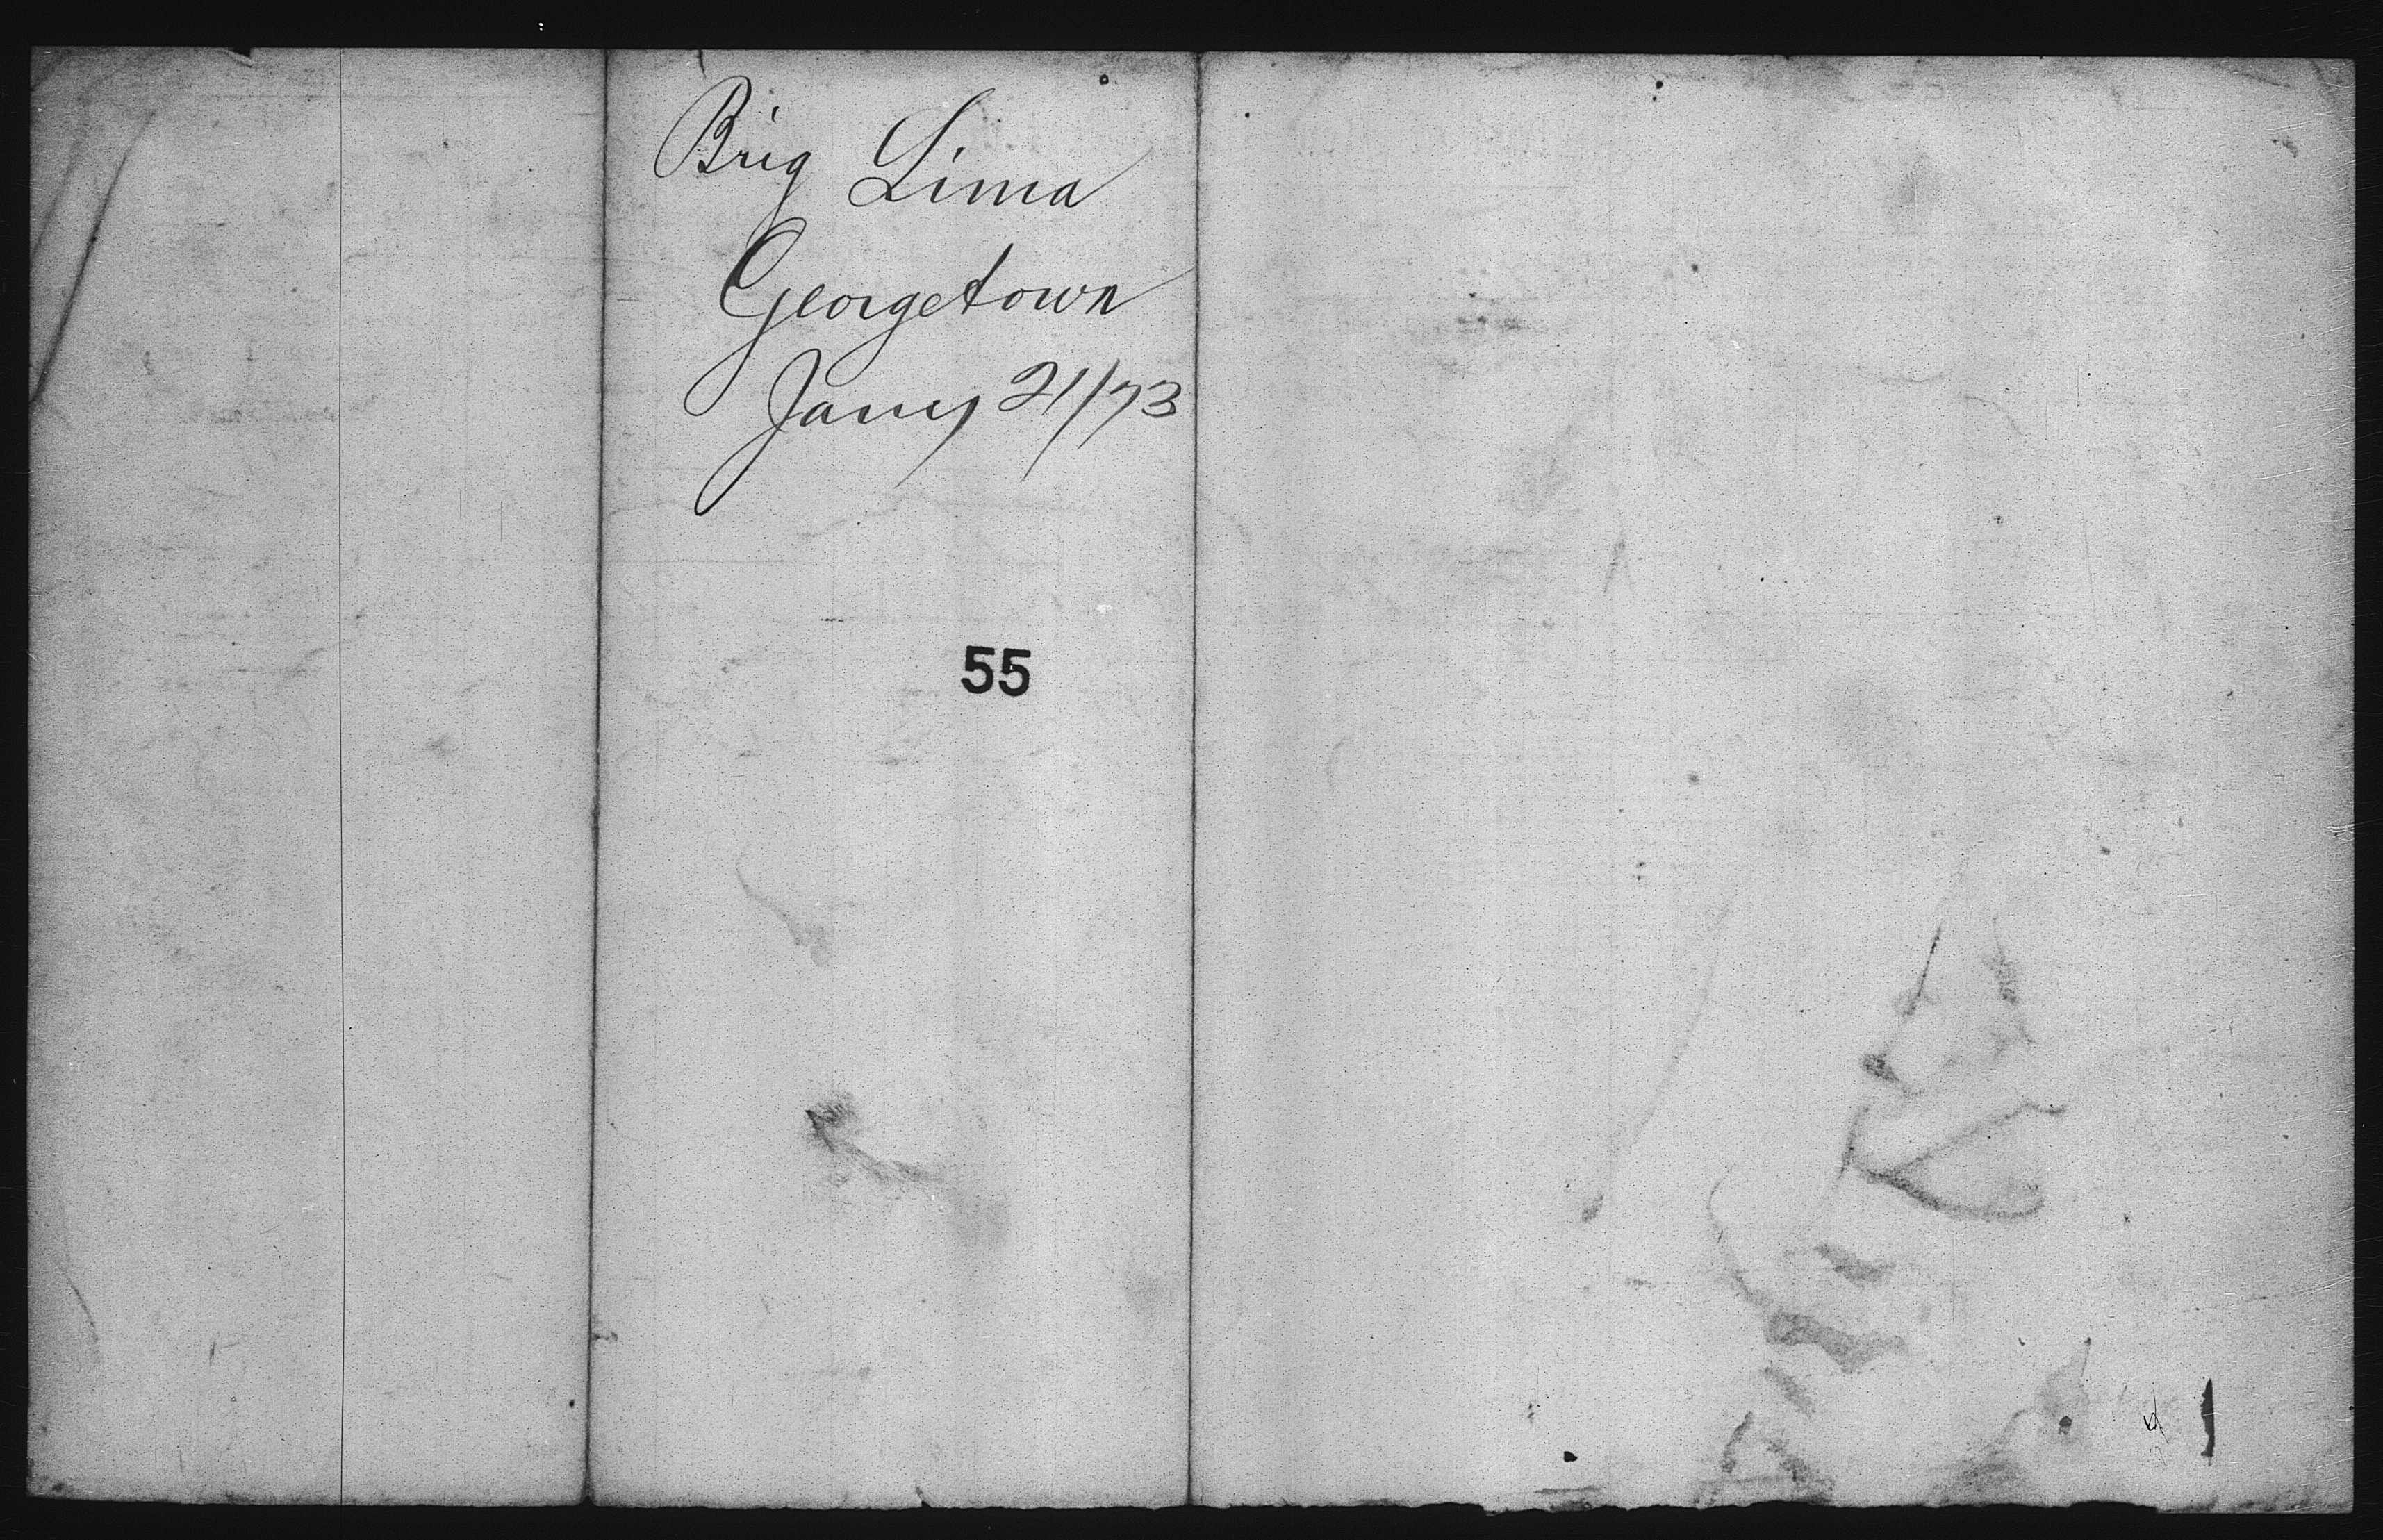 Brig Lima
Georgetown
Jany 21/73
55